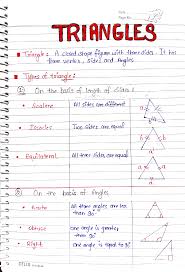 Date
Page No.
TRIANGLES
Triangle: A closed shape figure with three sides. It has
three vertex, sides and angles
Types of triangle:
① On the basis of length of sides:
Scalene All sides are different
Isosceles Two sides are equal
Equilateral All three sides are equal
② On the basis of Angles
Acute All three angles are less than 90°
Obtuse One angle is greater than 90°
Right One angle is equal to 90°